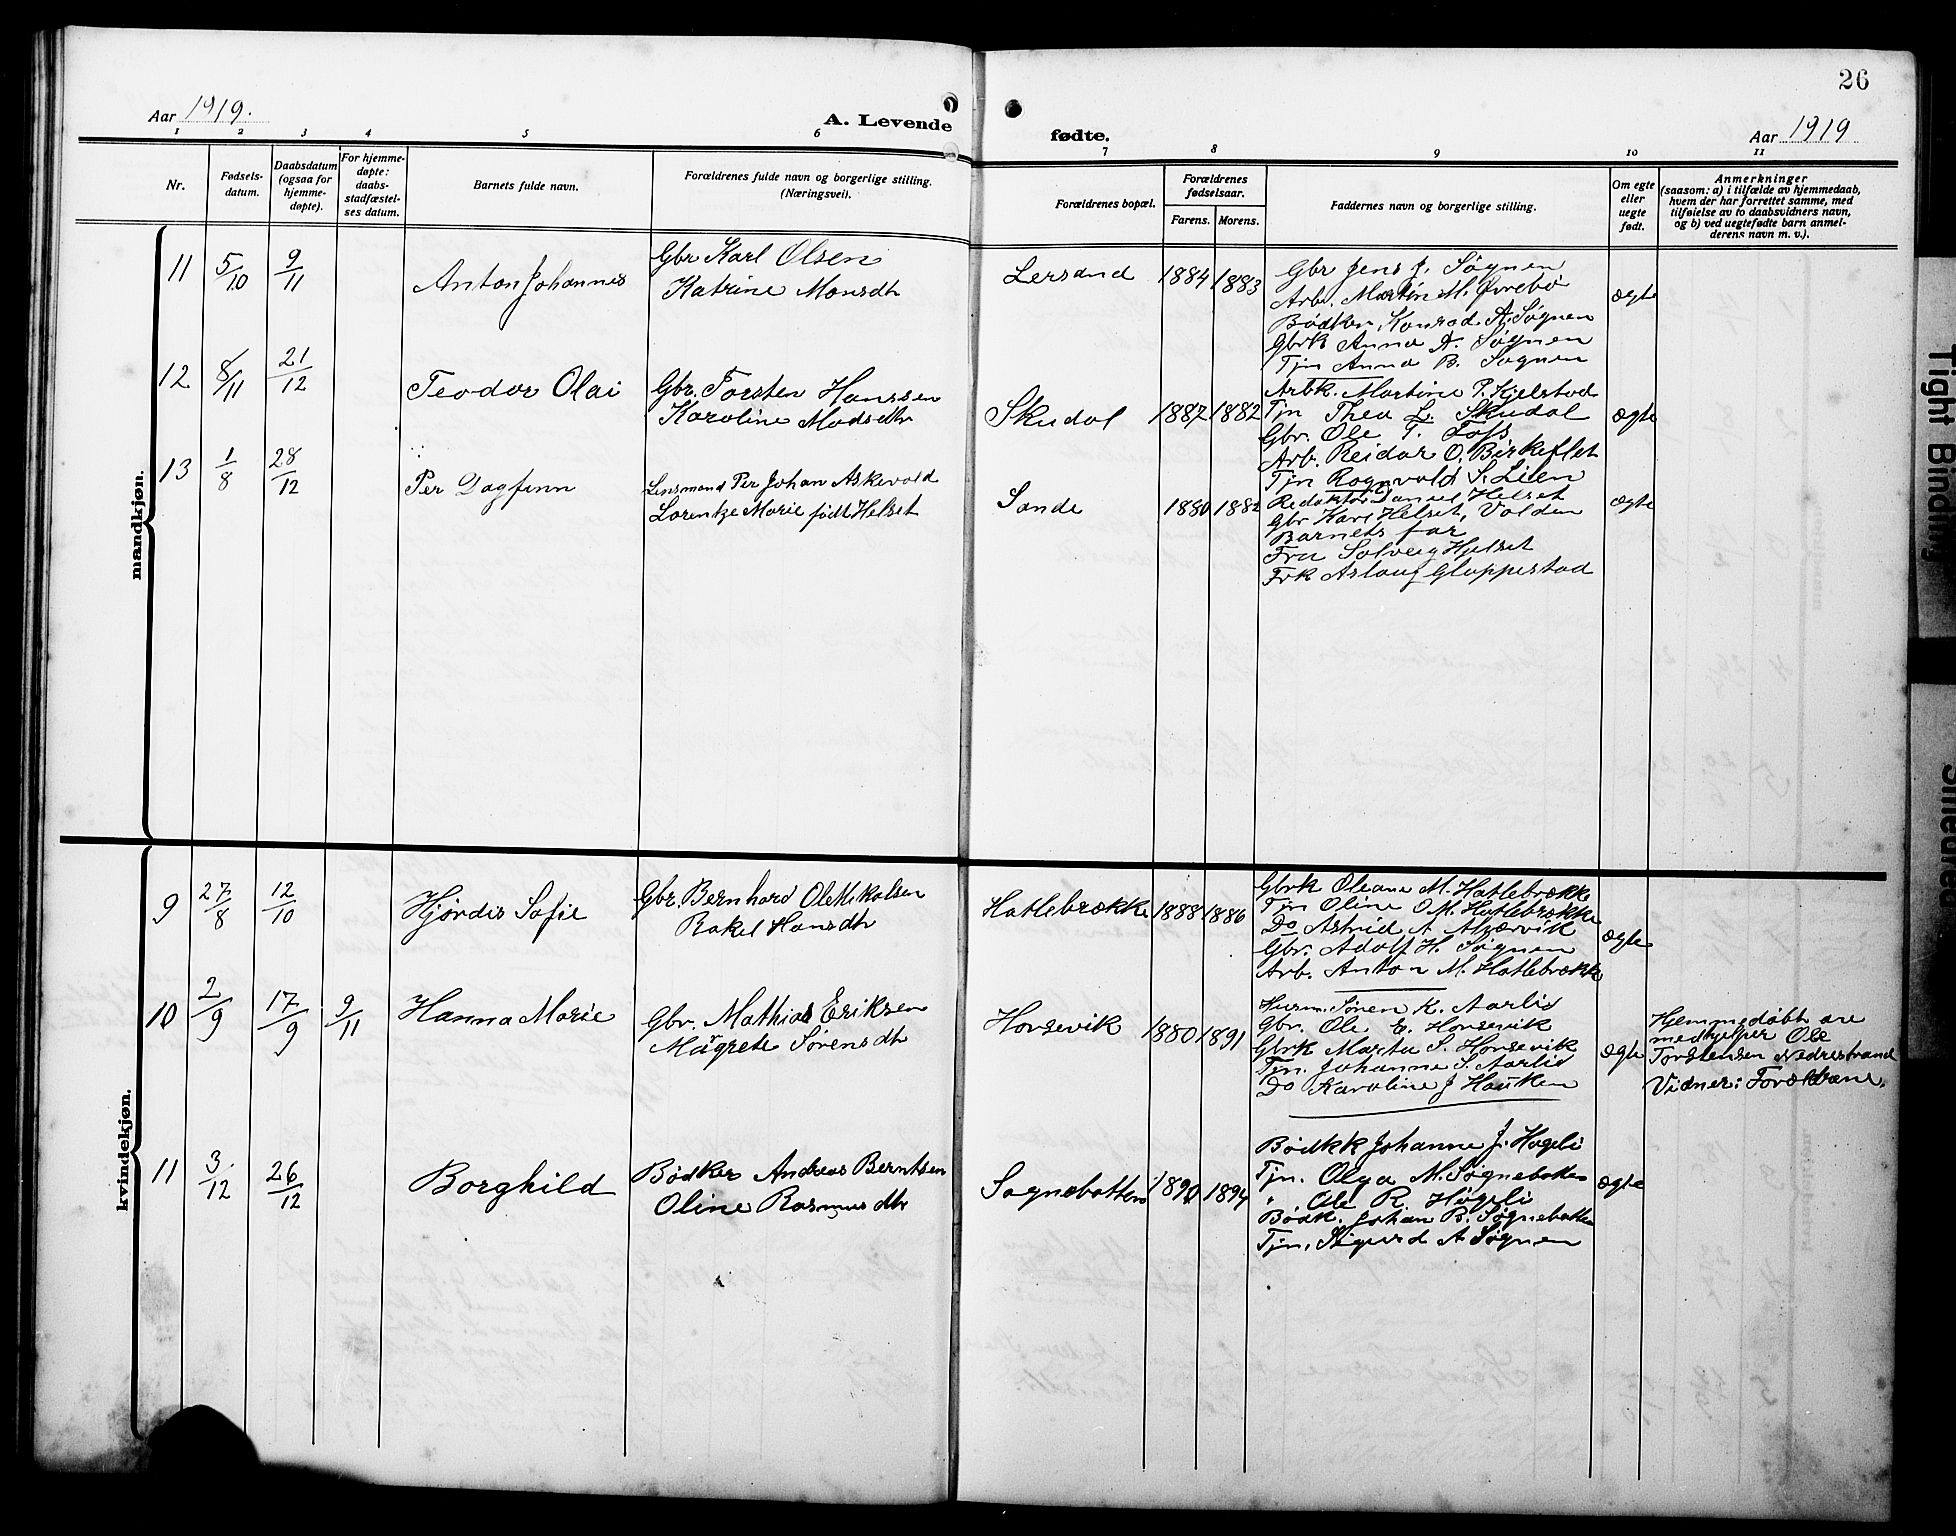 26
Aar 1919.
A. Levende
fødte.
Aar 1919
1 2 3 4 5 6 7 8 9 10 11
Nr.
Fødsels-
datum.
Daabsdatum
(ogsaa for
hjemme-
døpte).
For hjemme-
døpte:
daabs-
stadfæstel-
ses datum.
Barnets fulde navn.
Forældrenes fulde navn og borgerlige stilling.
(Næringsvei).
Forældrenes bopæl.
Forældrenes
fødselsaar.
Farens. Morens.
Faddernes navn og borgerlige stilling.
Om egte
eller
uegte
født.
Anmerkninger
(saasom: a) i tilfælde av hjemmedaab,
hvem der har forrettet samme, med
tilføielse av to daabsvidners navn,
og b) ved uegtefødte barn anmel-
derens navn m. v.).
mandkjøn.
11 5/10 9/11 Anton Johannes
Gbr Karl Olsen
Katrine Monsdtr
Lersand 1884 1883
Gbr Jens J. Søgnen
Arb. Martin M. Øvrebø
Bødker Konrad A. Søgnen
Gbrk Anna A. Søgnen
Tjn Anna B. Søgnen
ægte
12 8/11 21/12 Teodor Olai
Gbr. Torsten Hanssen
Karoline Madsdtr
Skudal 1887 1882
Arbk. Martine P. Kjelstad
Tjn Thea L. Skudal
Gbr. Ole T. Tofs
Arb. Reidar O. Birkeflet
Tjn Rognvald S. Lien
ægte
13 1/8 28/12 Per Dagfinn
Lensmand Per Johan Askevold
Lorentze Marie født Helset
Sande 1880 1882
Redaktør Daniel Helset
Gbr Karl Helset, Volden
Barnets far
Fru Solveig Helset
Frk Aslaug Gloppestad
ægte
kvindekjøn.
9 27/8 12/10 Hjørdis Sofie
Gbr. Bernhard Ole Mikalsen
Rakel Hansdtr
Hatlebrække 1888 1886
Gbrk Oleane M. Hatlebrække
Tjn Oline O M. Hatlebrække
Do Astrid A
Gbr. Adolf H. Søgnen
Arb. Anton M. Hatlebrække
ægte
10 2/9 17/9 9/11 Hanna Marie
Gbr. Mathias Eriksen
Magrete Sørensdtr
Horsevik 1880 1891
Husm. Søren K. Aarlid
Gbr. Ole E. Horsevik
Gbrk Marta S. Horsevik
Tjn. Johanne S. Aarlid
Do Karoline J Hauken
ægte
Hjemmedøbt av
medhjelper Ole
Torstensen Nedrestrand
Vidner: Forældrene.
11 3/12 26/12 Borghild
Bødker Andreas Berntsen
Oline Rasmusdtr
Søgnebotten 1890 1894
Bødkk Johanne J. Høgeli
Tjn. Olga M. Søgnebotten
" Ole R. Høgeli
Bødk. Johan R. Søgnebotten
Tjn. Sigurd A Søgnen
ægte
Tight Binding